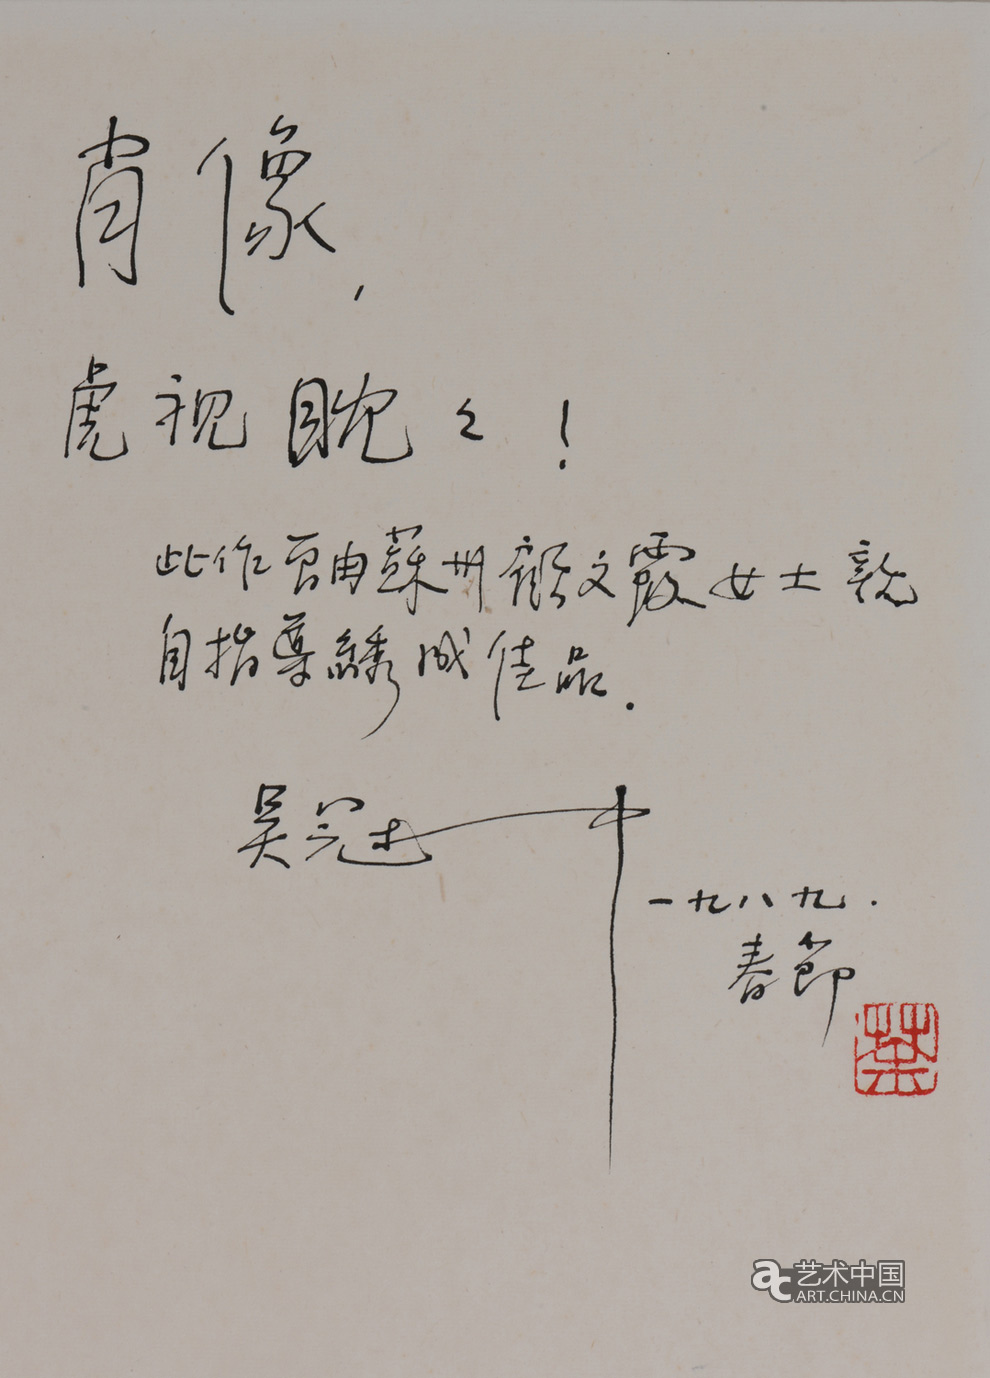 肖像，
虎视眈々！
此作曾由蘇州顾文霞女士親
自指導綉成佳品.
吴冠中
一九八九.
春節
荼
艺术中国
ART.CHINA.CN